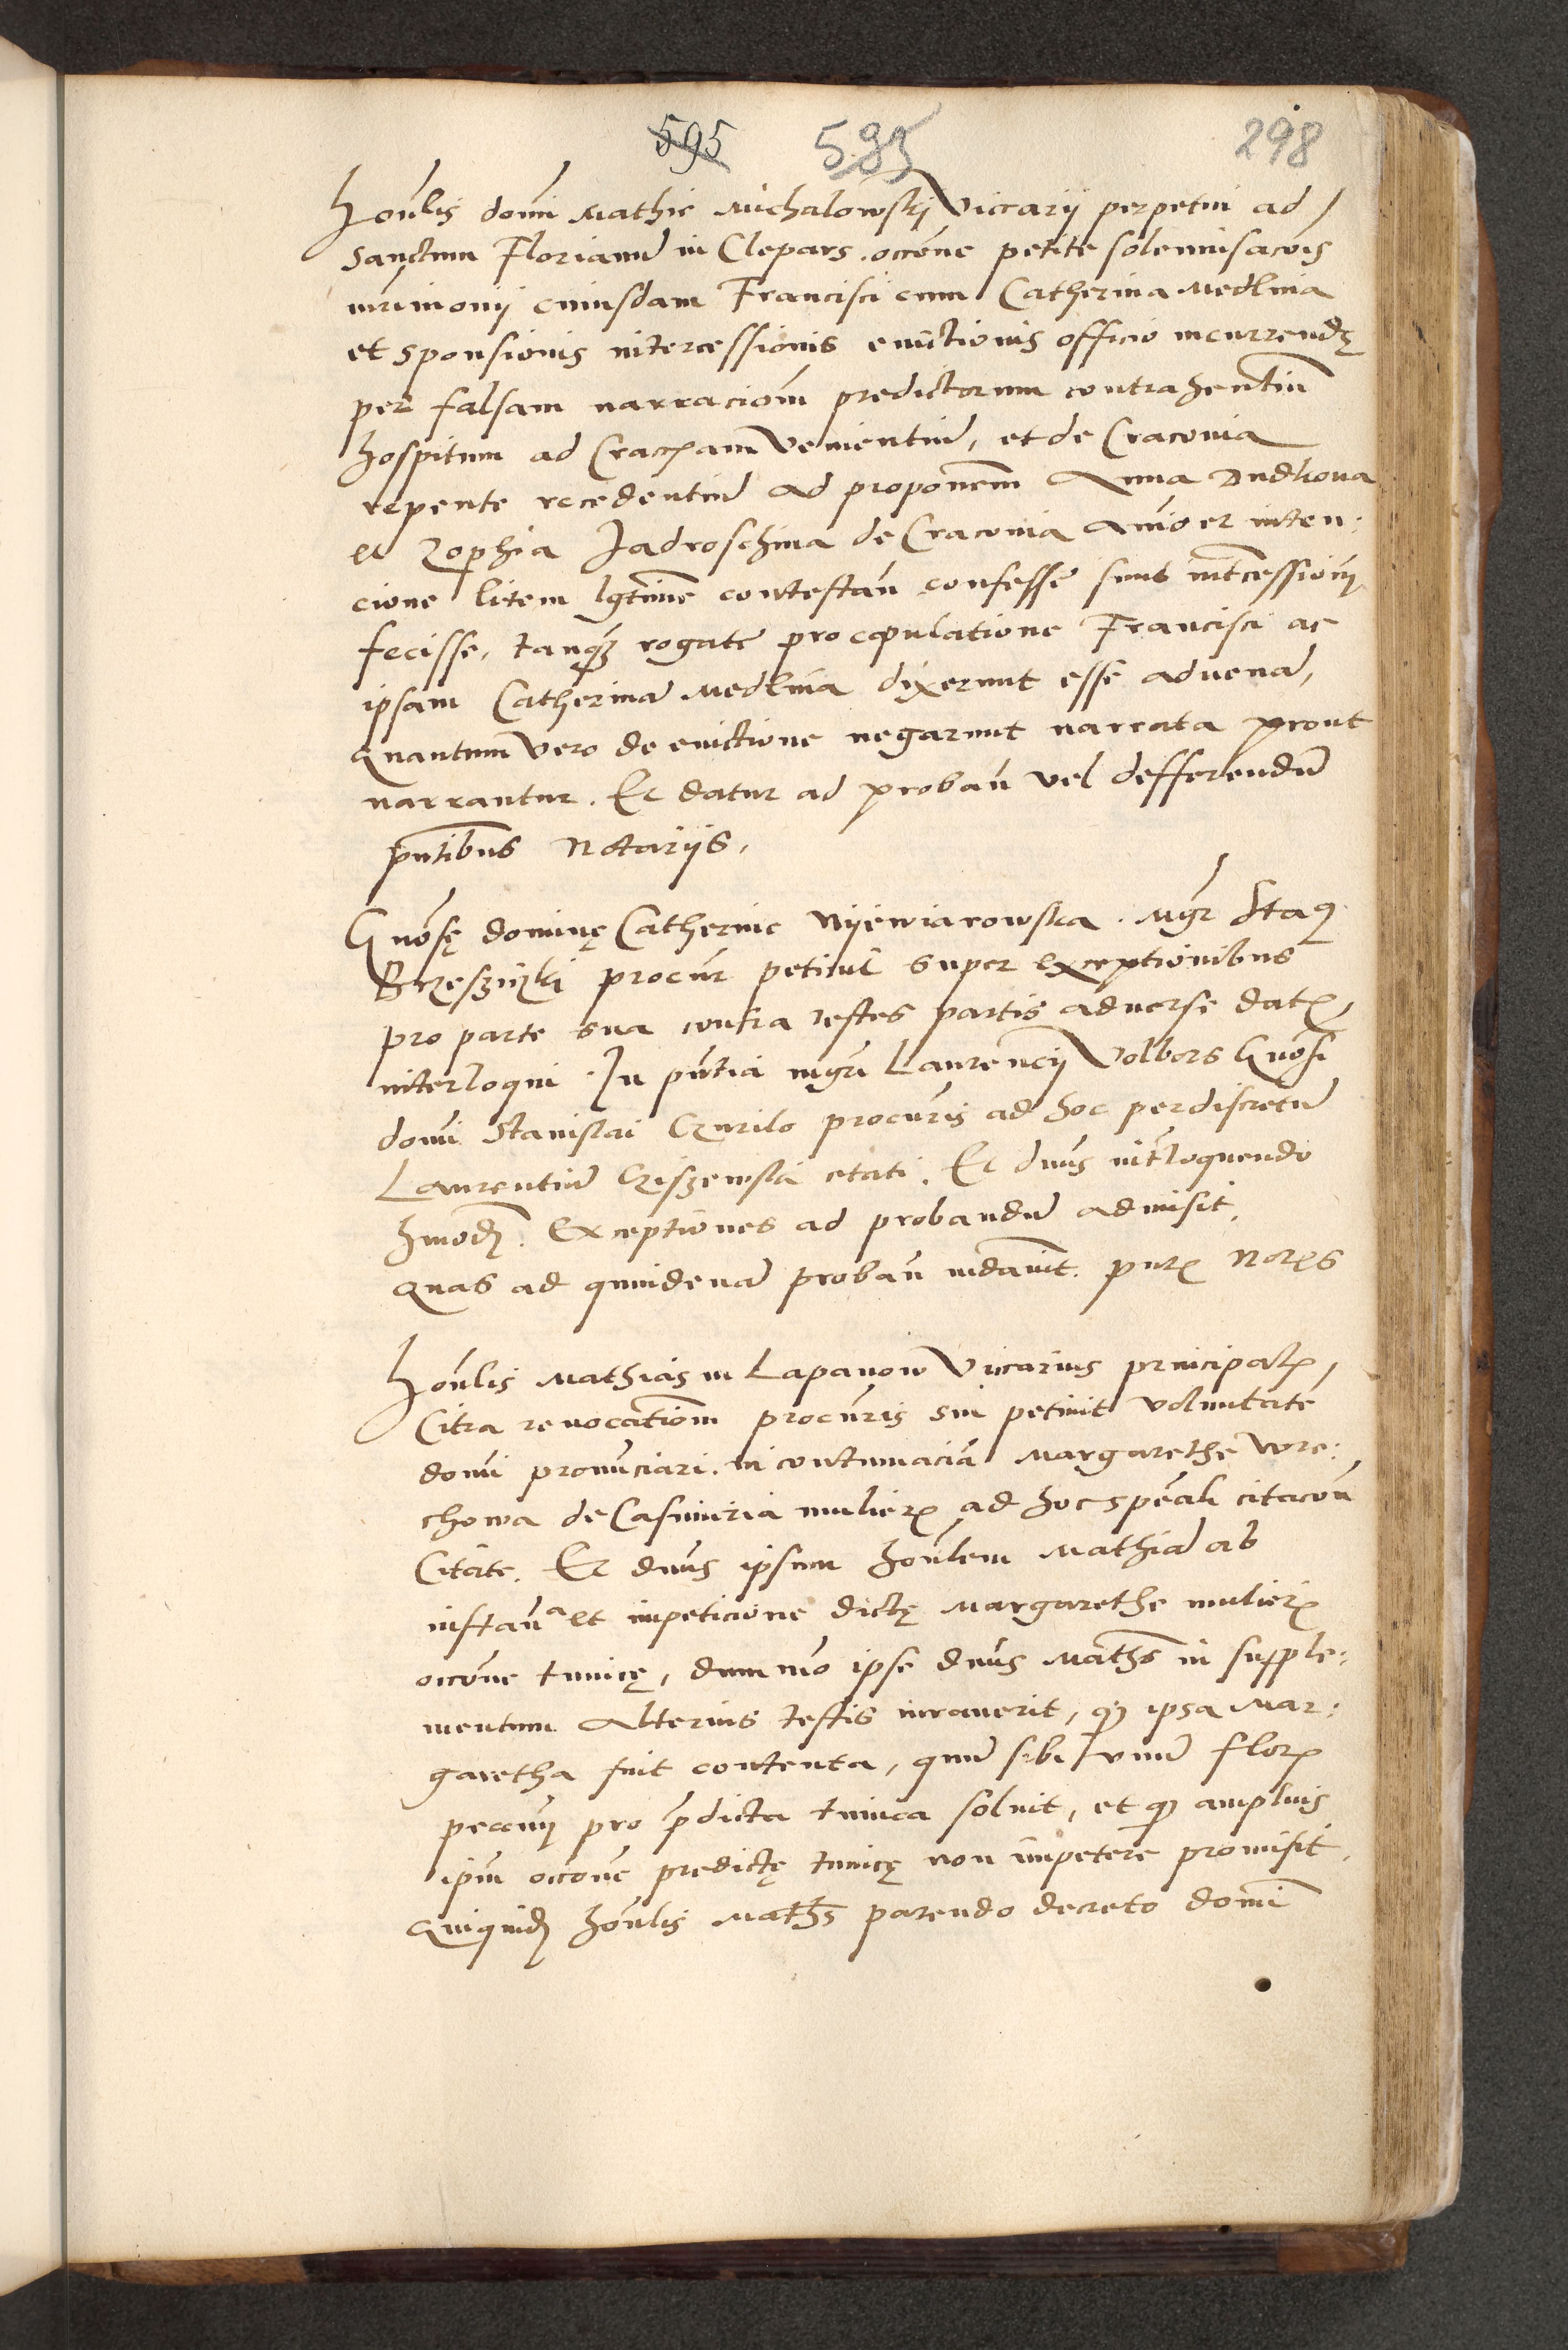 595 595 298
Honlis domi Mathie Michalowskij Viccarij perpetui ad
Sanctum Florianu in Clepars. occone petite solemnisacois
mrimonij cuiusdam Francisci cum Catherina Medlina
et sponsionis intercessionis euictionis officio incurrendę
per falsam narraciom predictorum contrahentiu
hospitum ad Crac. venientiu, et de Craconia
repente recedentiu ad proponem Anna Dudkoua
et Zophia Jadroschina de Craconia animo et inten:
cione litem lgtime contestan confesse sunt intcessionem
fecisse, tanq rogate pro copulatione Francisci ac
ipsam Catherina Medlina dixerunt esse aduena,
quantum vero de euictione negarunt narrata prout
narrantur. Et datur ad proban vel defferendu
pntibus Notarijs.
Gnosę dominę Catherine Nyewiarowska. Mgr Sta
procur petiuit super exceptionibus
pro parte sua contra testes partis aduerse dat
interloqui. In pntia mgri Laurencij Volbors Gnosi
domi Stanislai Czurilo procuris ad hoc per discretu
Laurentiu citati. Et dnus intloquendo
hmodj. Exceptiones ad probandu admisit,
quas ad quindena proban mdauit. pnt Noris
Honlis Mathias in Lapanow Viccarius principal,
Citra reuocationem procuris sui petiuit voluntate
domi pronunciari. in contumacia Margarethe Wore:
chowa de Casimiria mulier ad hoc speali citacon
Citate. Et dnus ipsum honlem Mathia ab
instan et impeticione dictę Margarethe mulier
occone tunicę, dummo ipse dnus Maths in supple:
mentum alterius testis iurauerit, q ipsa Mar:
garetha fuit contenta, quu sibi vnu flor
pro pdicta tunica soluit, et q amplius
ipm occone predictę tunicę non impetere promisit.
Quiquidj honlis Maths parendo decreto domi